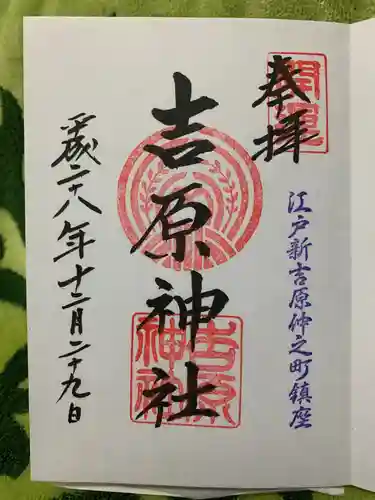 開運
奉拝
江戸新吉原仲之町鎮座
吉原神社
吉原神社
平成二十八年十二月二十九日